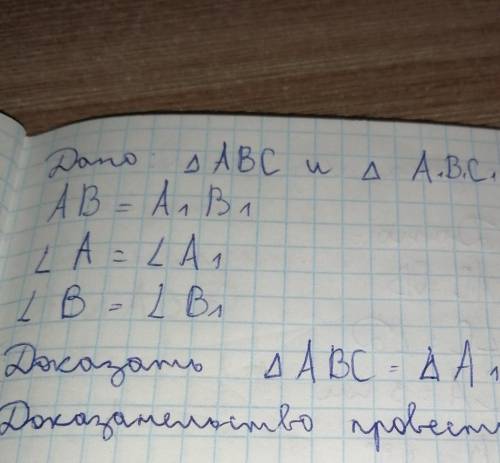 Дано: △ ABC и △ A₁B₁C₁
AB = A₁B₁
∠ A = ∠ A₁
∠ B = ∠ B₁
Доказать △ ABC = △ A₁
Доказательство провест